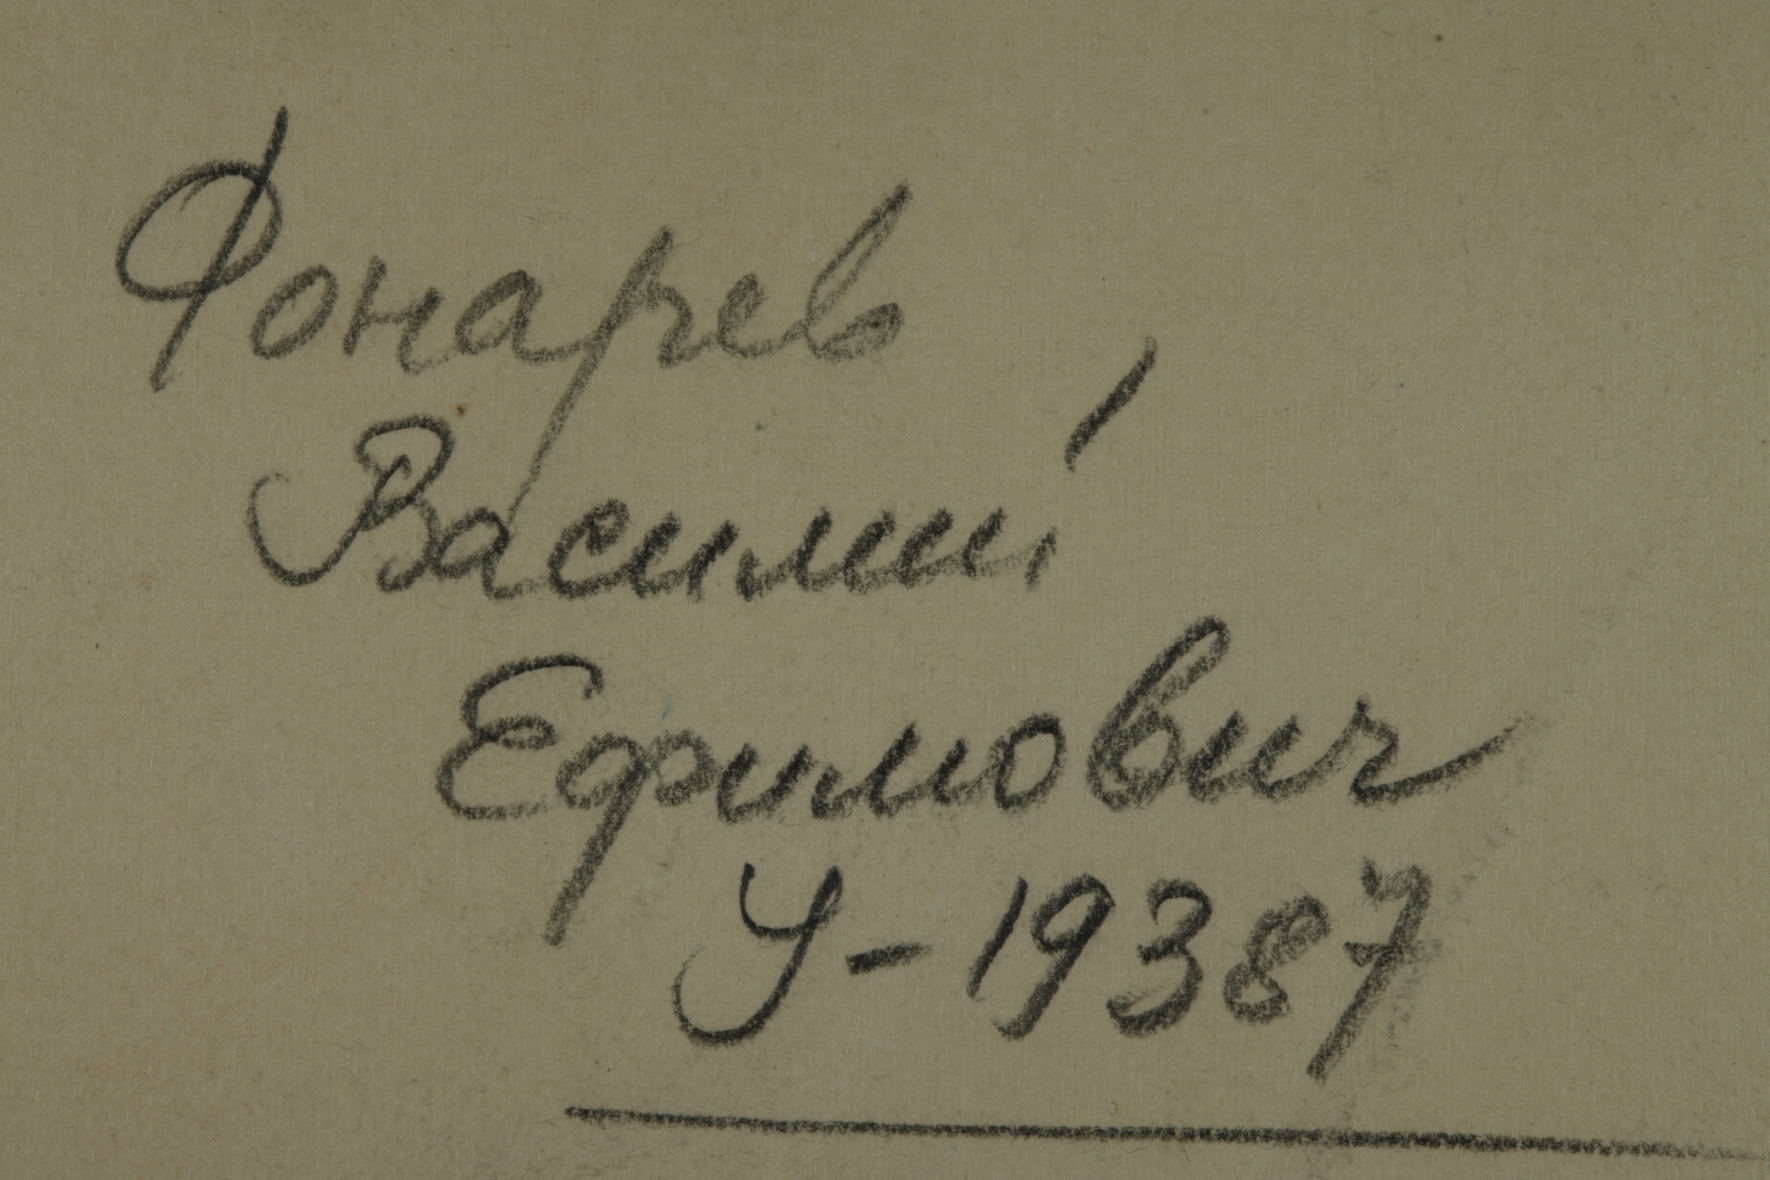 Фонарев
Василий
Ефимович
У-19387